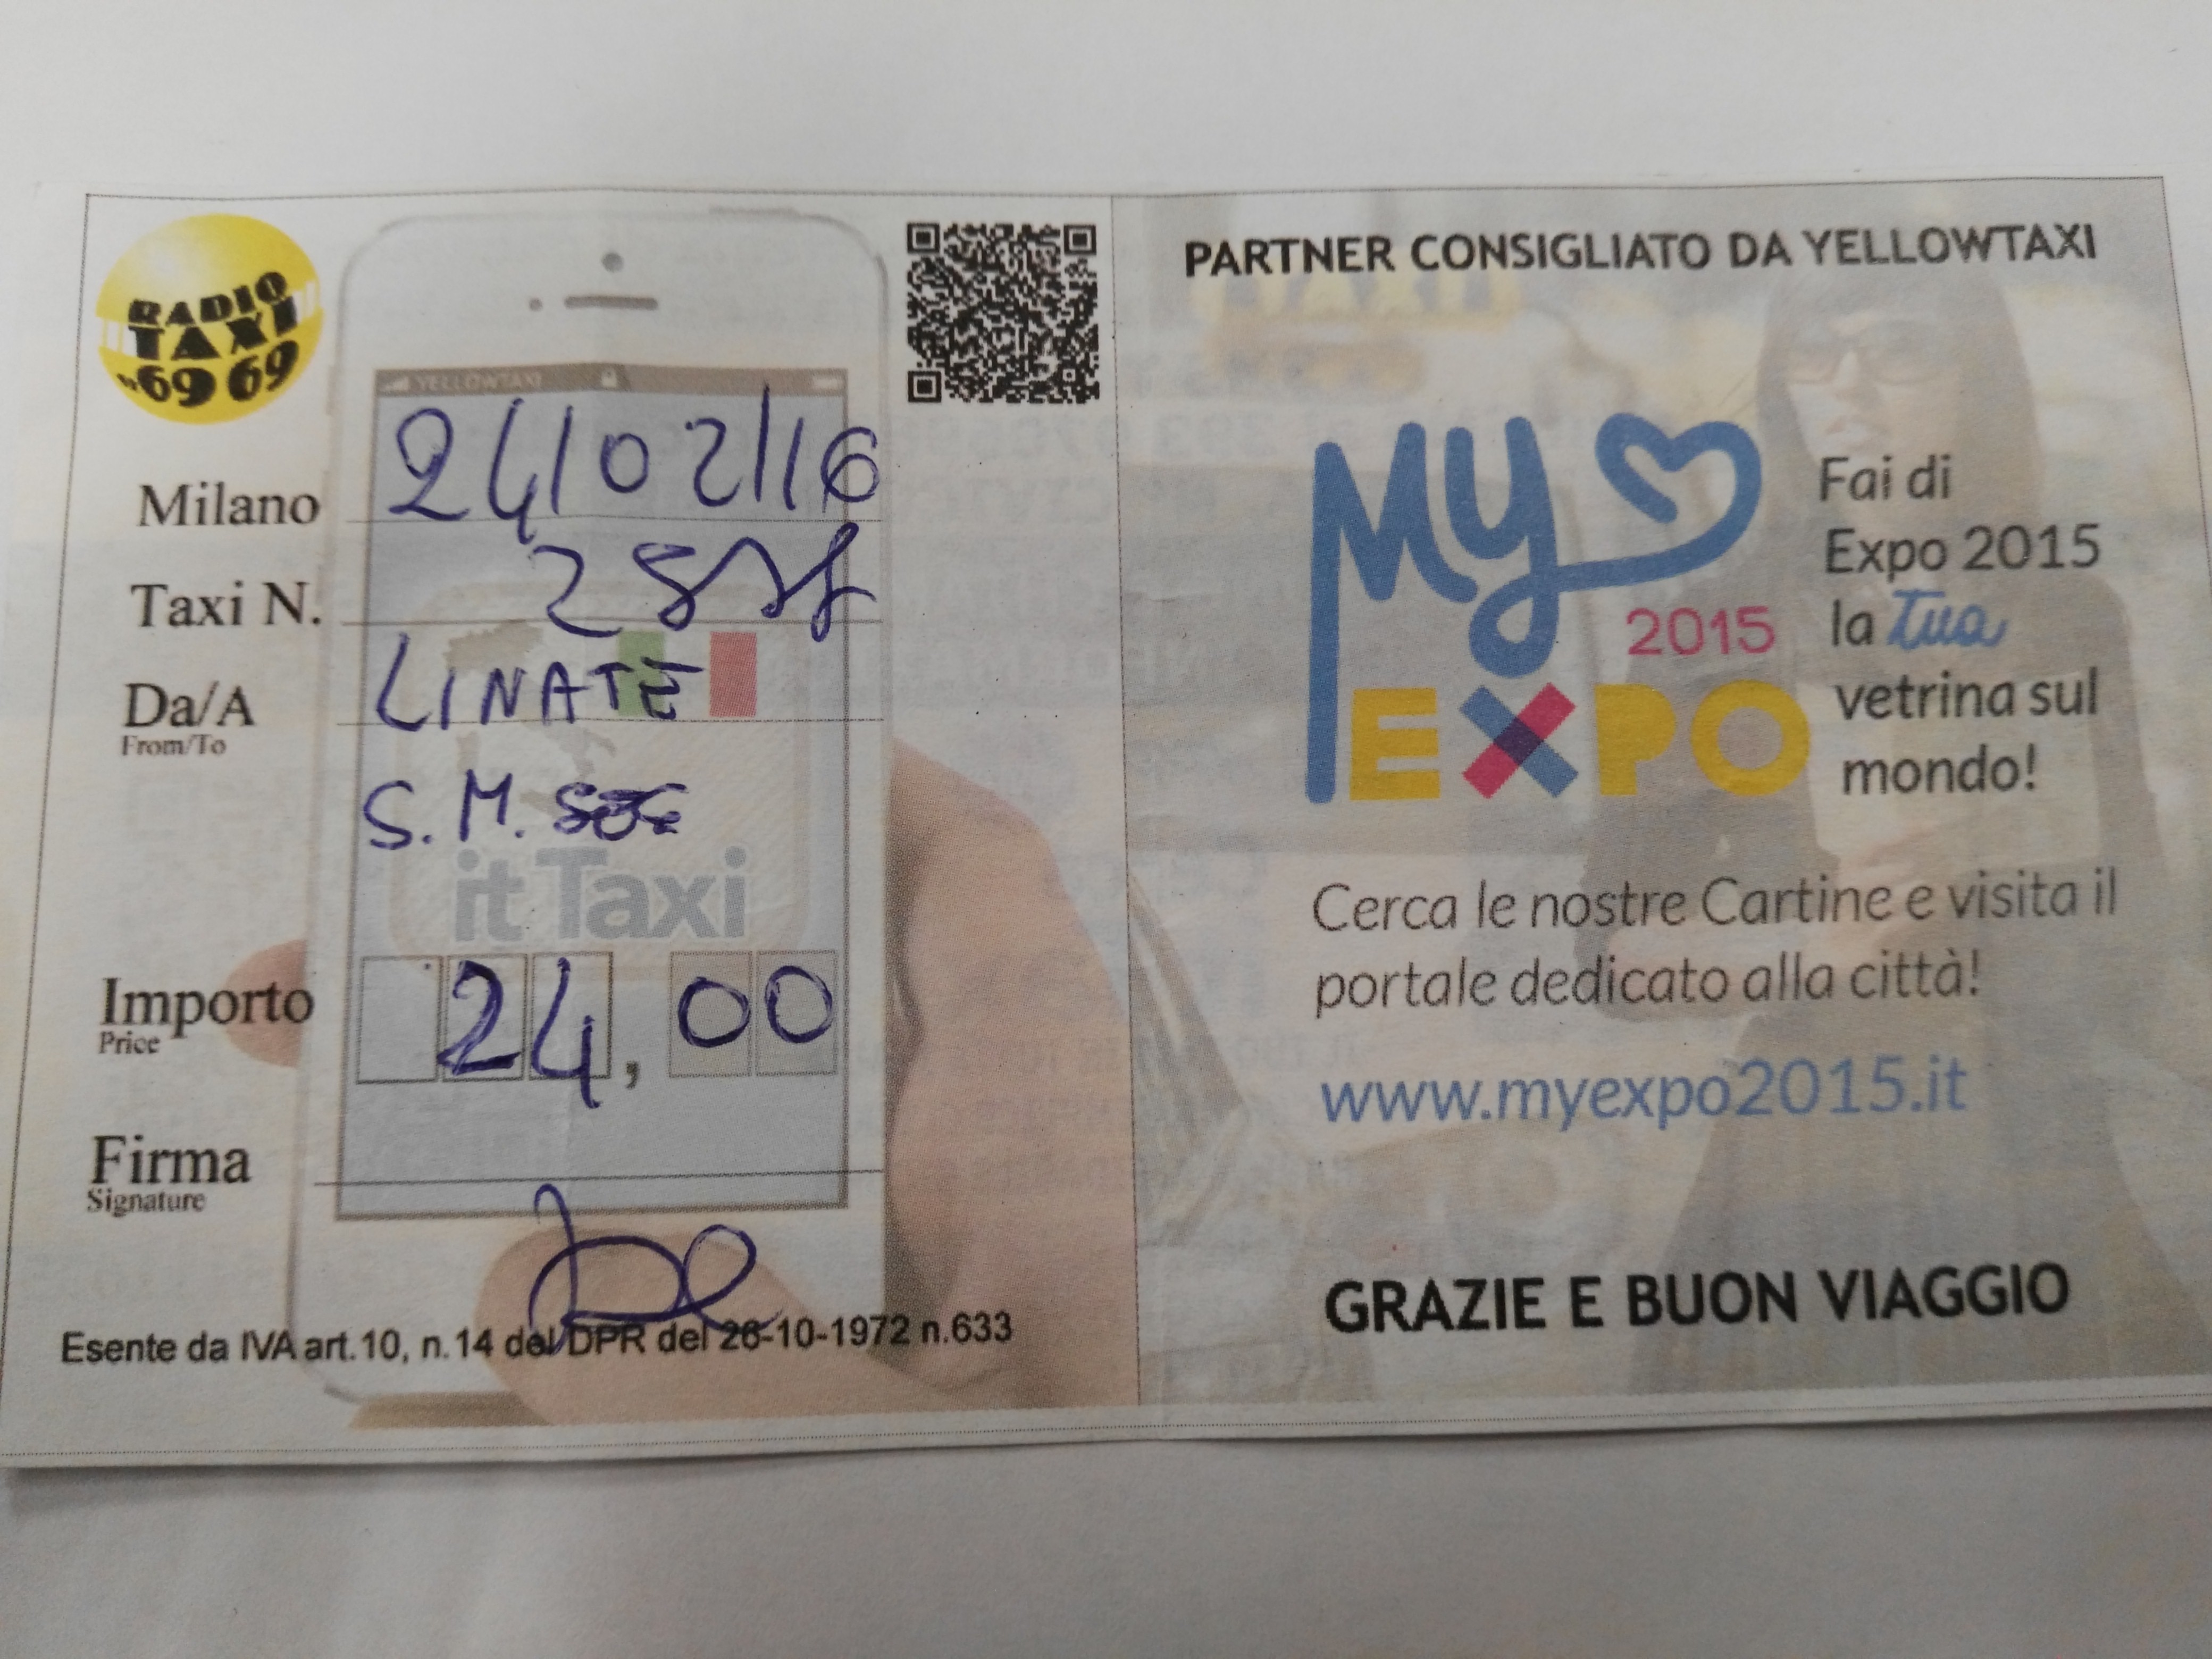 RADIO
TAXI
69 69
YELLOWTAXI
Milano 24/02/16
Taxi N.
Da/A LINATE
From/To
S. M.
it Taxi
Importo 24,00
Price
Firma
Signature
Esente da IVA art.10, n.14 del DPR del 26-10-1972 n.633
PARTNER CONSIGLIATO DA YELLOWTAXI
My
2015
EXPO
Fai di
Expo 2015
la tua
vetrina sul
mondo!
Cerca le nostre Cartine e visita il
portale dedicato alla città!
www.myexpo2015.it
GRAZIE E BUON VIAGGIO